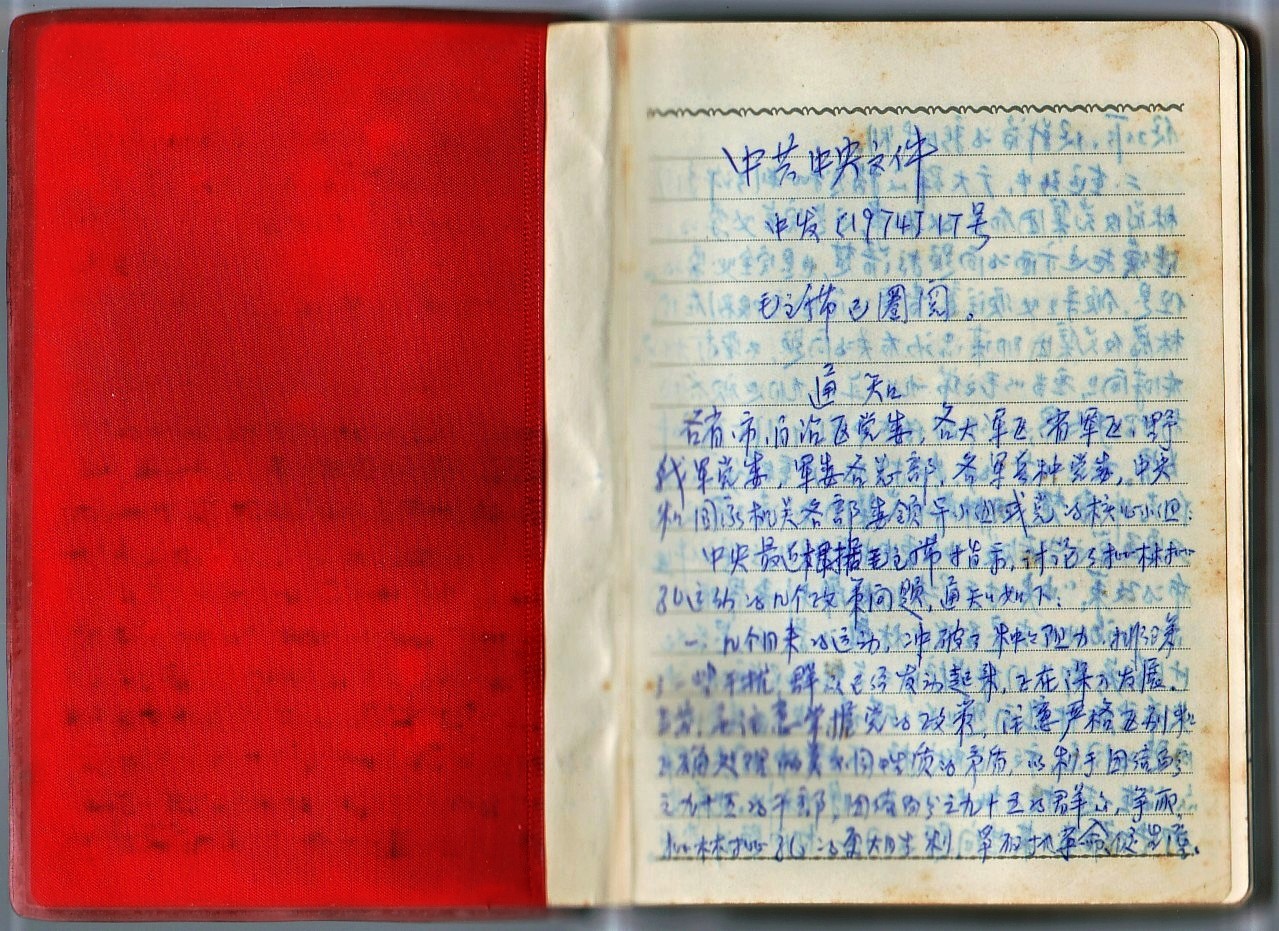 中共中央文件
中发〔1974〕17号
毛主席已圈阅。
通知
各省、市、自治区党委，各大军区、省军区、野
战军党委，军委各总部、各军兵种党委，中央
和国家机关各部委领导小组或党的核心小组：
中央最近根据毛主席指示，讨论了批林批
孔运动的几个政策问题，通知如下：
一、几个月来的运动，冲破了种种阻力，排除了
一些干扰，群众已经发动起来，正在深入发展。
要注意掌握党的政策，注意严格区别和
正确处理两类不同性质的矛盾，以利于团结百分
之九十五的干部，团结百分之九十五的群众，争取
批林批孔的更大胜利，争取抓革命促生产、